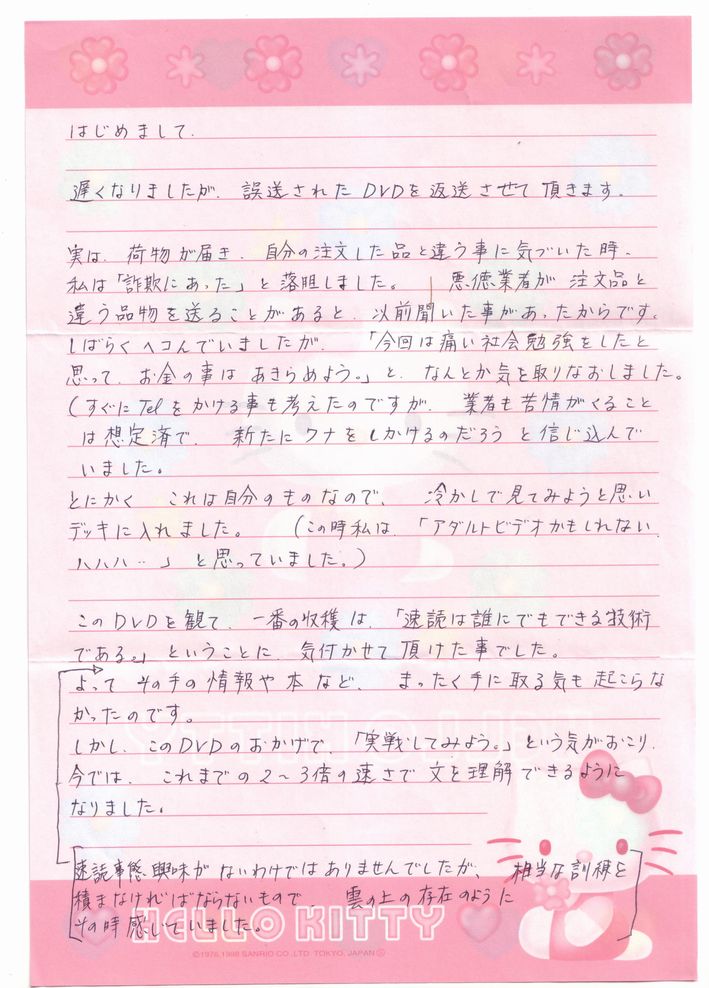 はじめまして.
遅くなりましたが、誤送された DVDを返送させて頂きます.
実は、荷物が届き、自分の注文した品と違う事に気づいた時、
私は「詐欺にあった」と落胆しました。 悪徳業者が 注文品と
違う品物を送ることがあると、以前聞いた事があったからです.
しばらくヘコんでいましたが、「今回は痛い社会勉強をしたと
思って、お金の事は あきらめよう。」と、なんとか気を取りなおしました。
(すぐに Tel をかける事も考えたのですが、業者も苦情がくること
は想定済で、新たに ワナをしかけるのだろう と信じ込んで
いました。
とにかく これは自分のものなので、 冷かしで見てみようと思い
デッキに入れました。 (この時私は、「アダルトビデオかもしれない、
ハハハ‥」と思っていました。)
このDVDを観て、一番の収穫は、「速読は誰にでもできる技術
である。」ということに、気付かせて頂けた事でした。
よって その手の情報や本など、 まったく手に取る気も起こらな
かったのです。
しかし、このDVDのおかげで、「実戦してみよう。」という気がおこり、
今では、これまでの2〜3倍の速さで文を理解できるように
なりました。
速読事態興味が ないわけではありませんでしたが、 相当な訓練を
積まなければならないもので、 雲の上の存在のように
その時感じていました。
HELLO KITTY
©1976,1998 SANRIO CO.,LTD. TOKYO, JAPAN